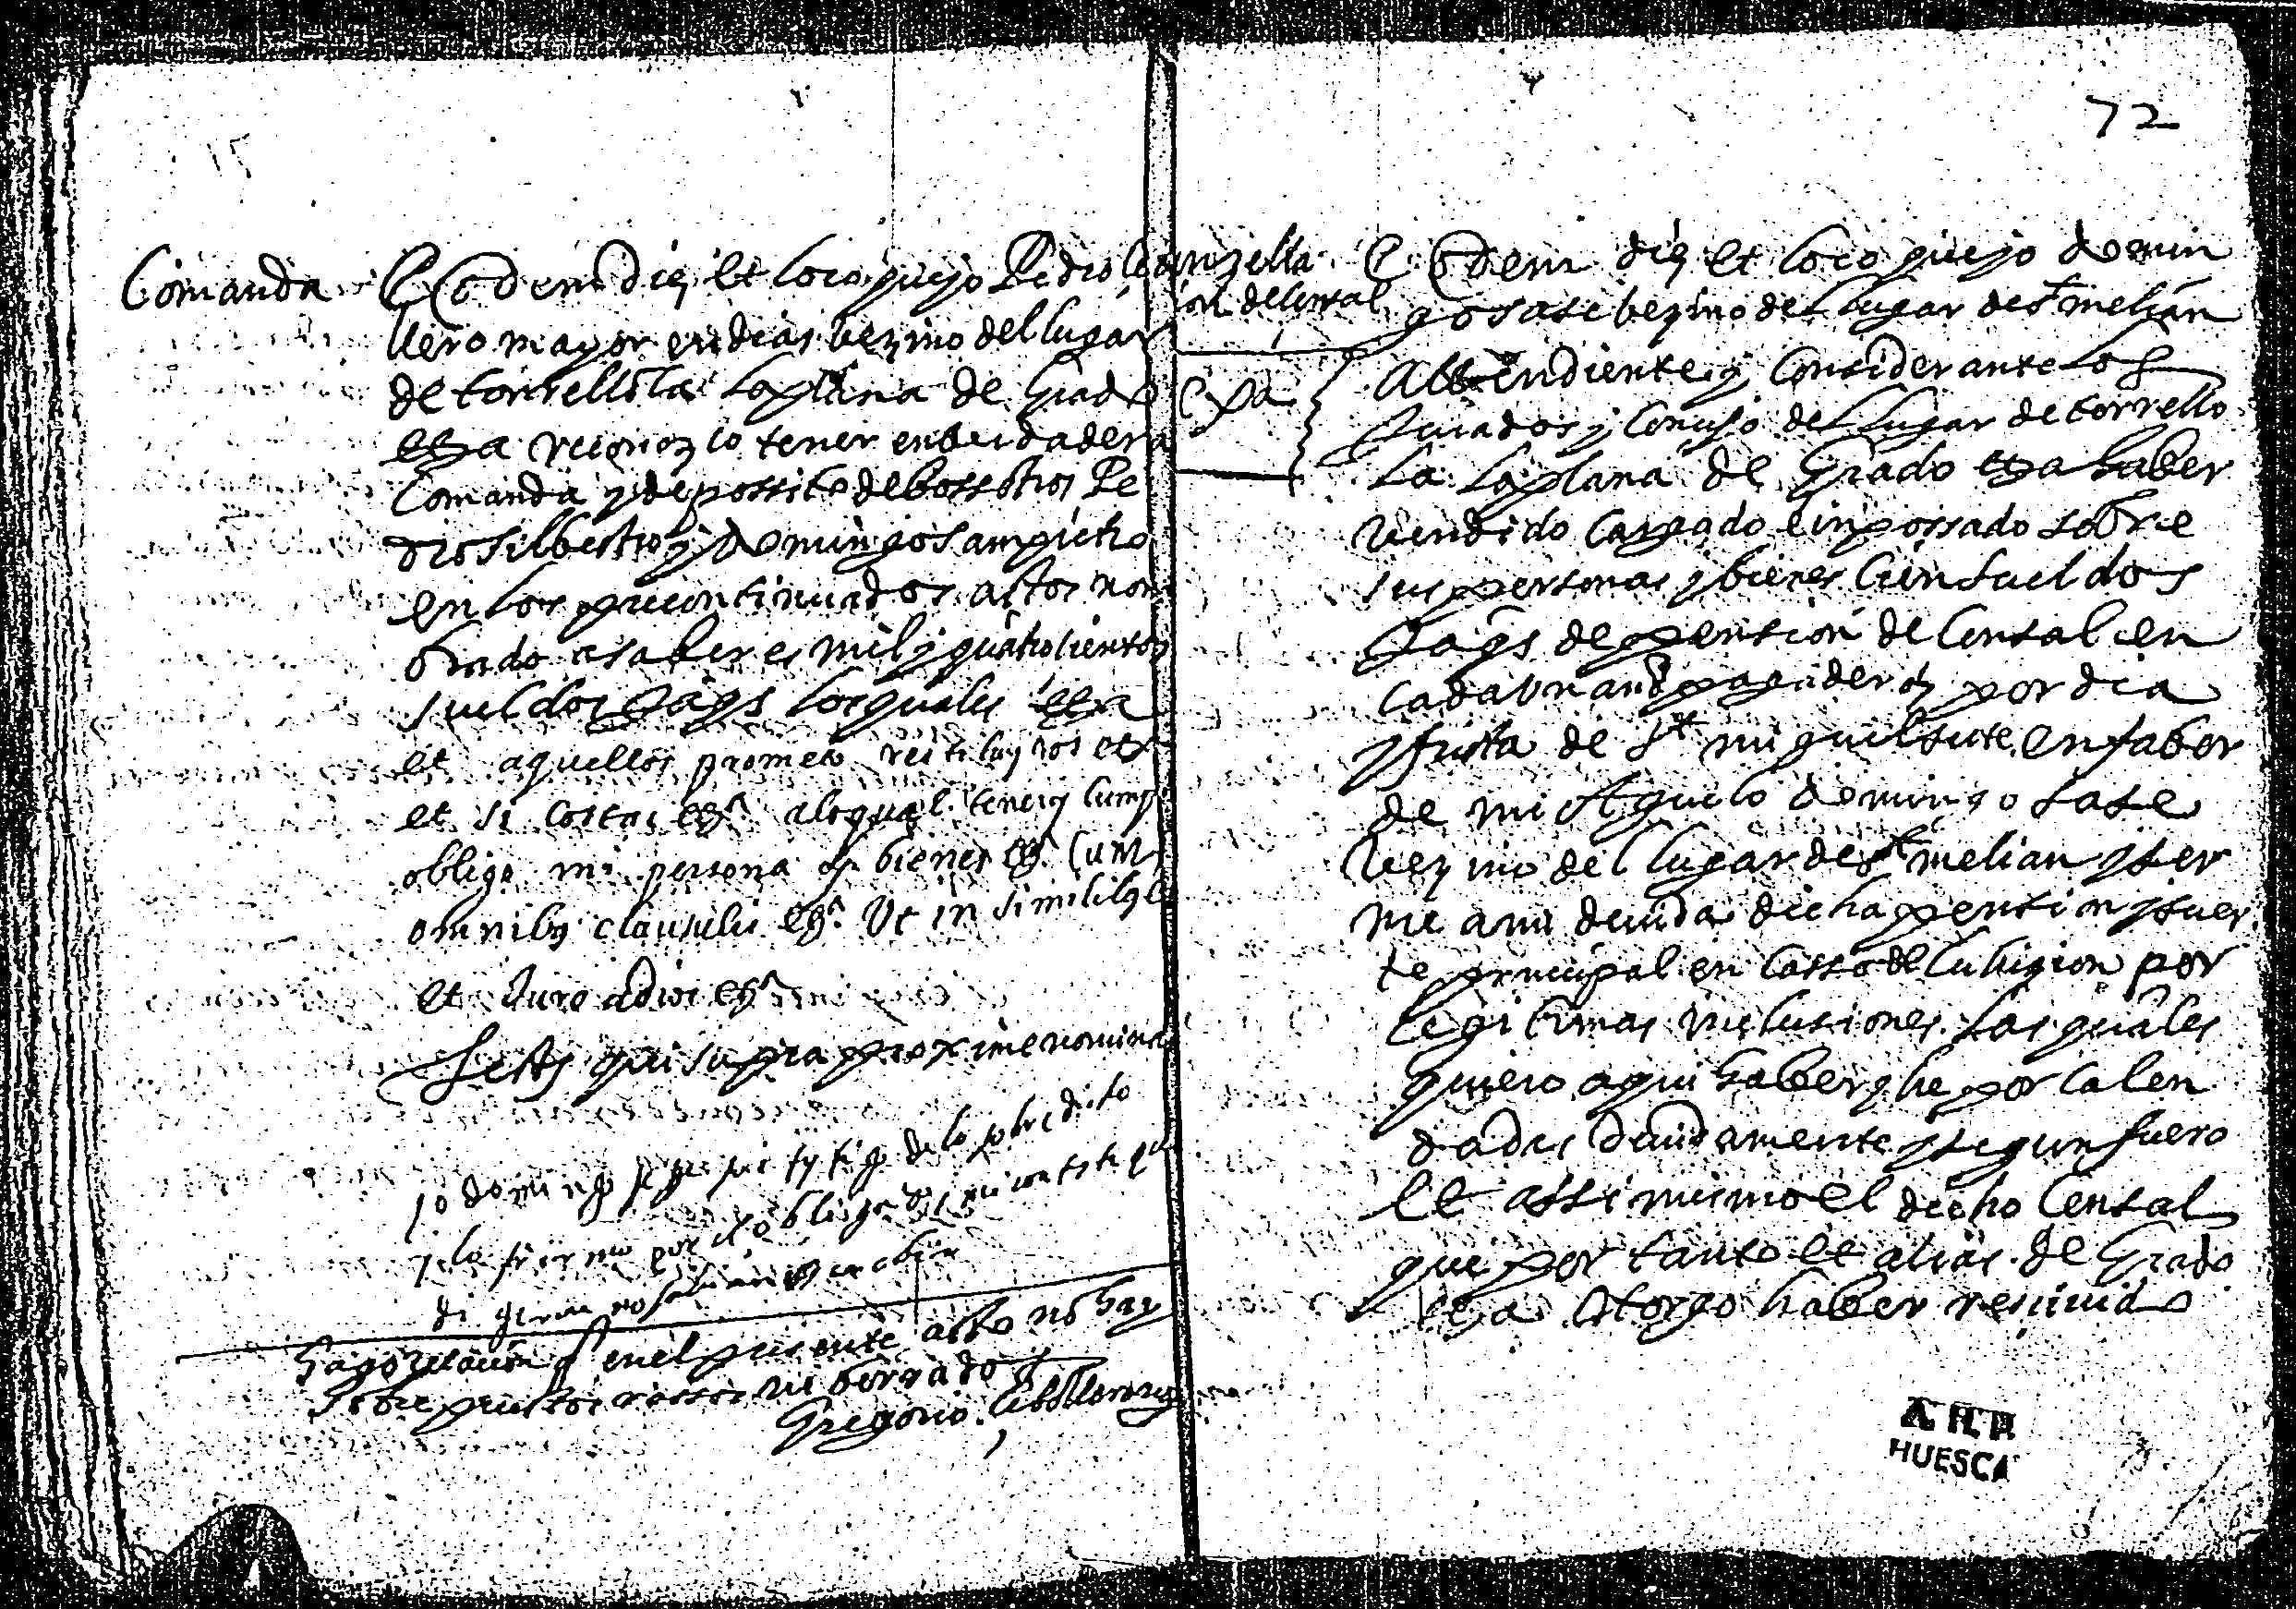 Comanda
Eodem die et loco que yo Pedro
llero mayor en dias bezino del lugar
de torrellola la plana de Grado
etza reconozco tener en berdadera
Comanda y depossito de bossotros Pe
dro silbestro y Domingo sampietro
en los precontinuados actos nom
brado a saber es mil y quatrocientos
sueldos jaqs los quales etza
et aquellos prometo restituyros etz
et si costas etza a lo qual tener y cump
obligo mi persona y bienes etza cum
omnibus clausulis etza Ut in similibus
et Juro a dios etza
testes qui supra proxime nominad
yo domingo soy testigo de lo sobredicho
y lo firmo por los obligados y mi contestigo que
di geron no sabian escrebir
Hago relacion q en el presente acto no hay
sobrepuestos rassos ni borrado
Gregorio Cebollero noz
72
Canzella
ion del censal
etza
Eodem die et loco que yo domin
go sase bezino del lugar de St melian
Attendiente y Considerante los
Jurados y Concejo del lugar de torrello
la la plana de Grado etza haber
Vendido cargado e inpossado sobre
sus personas y bienes Cien sueldos
Jaqs de pension de Censal en
cada un año pagaderos por dia
y fiesta de St miguel sete en fabor
de mi Aguelo domingo sase
Vezino del lugar de St melian y ser
me a mi deuida dicha pension y suer
te principal en casso de luhicion por
legitimas inclusiones las quales
quiero aqui haber y he por calen
dadas deuidamente y segun fuero
Et assi mismo el dicho Censal
que por tanto et alias de Grado
etza Atorgo haber reciuido
A H P
HUESCA